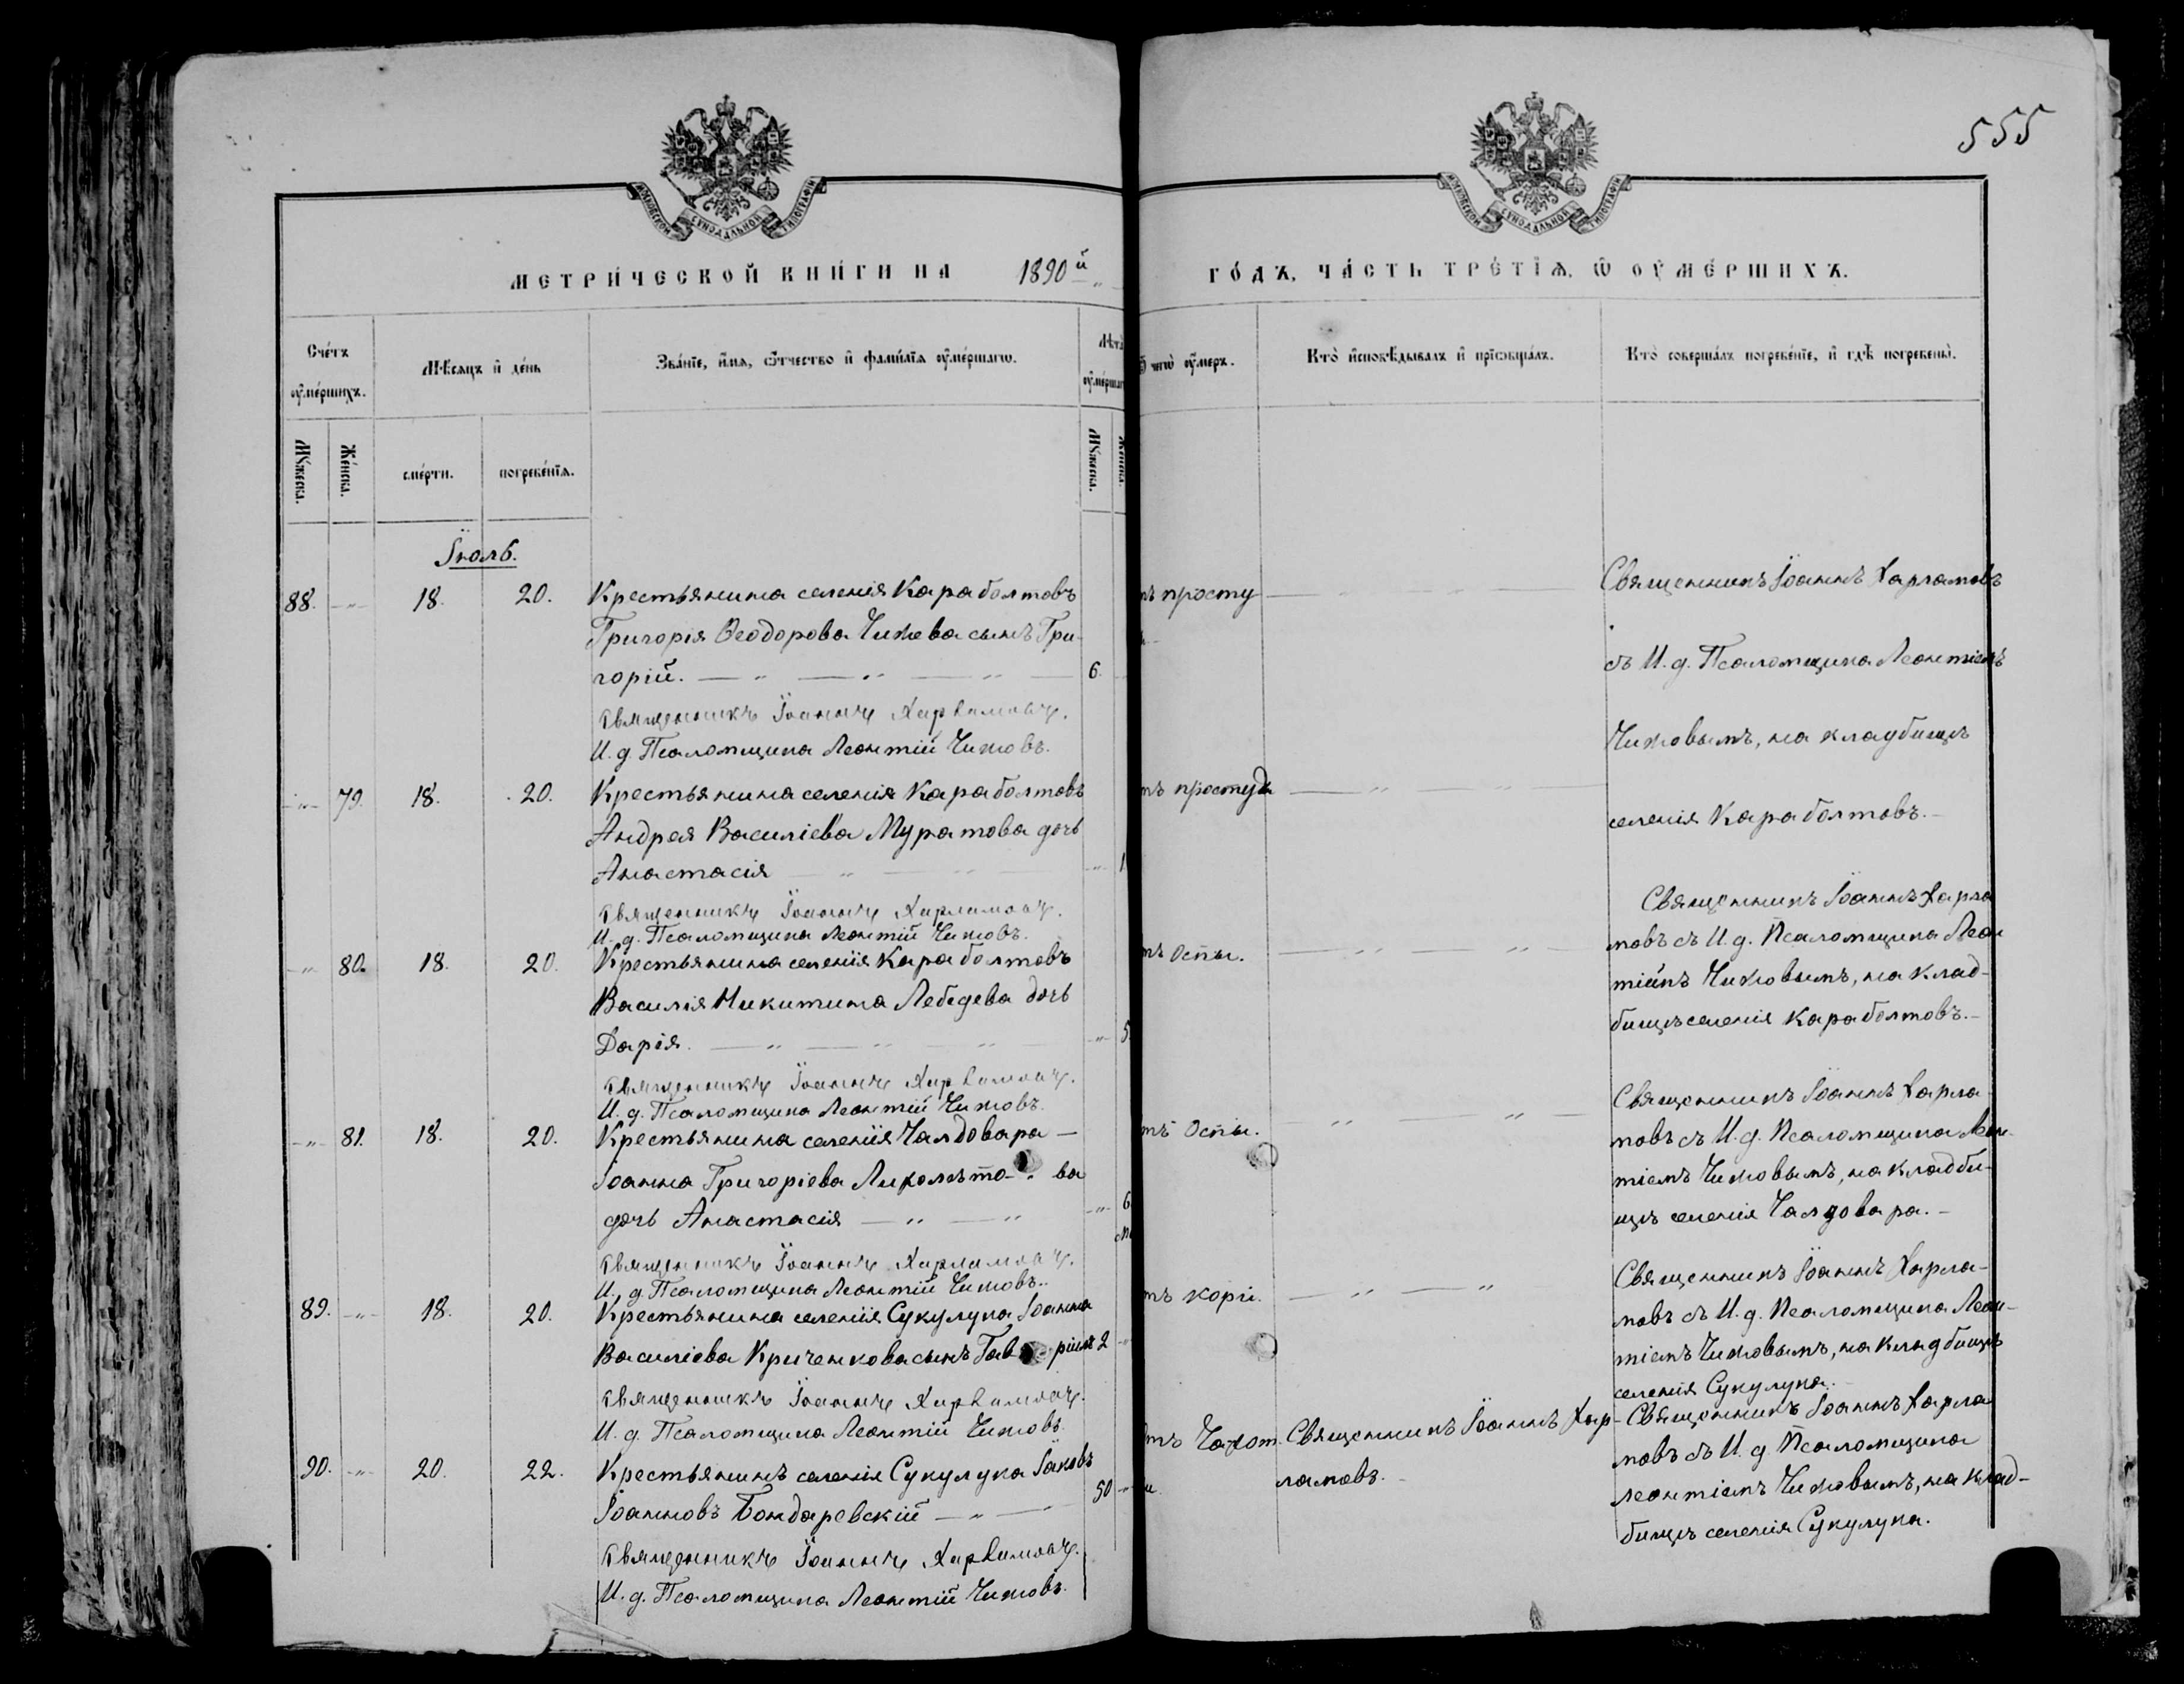 555
МОСКОВСКОЙ СѴНОДАЛЬНОЙ ТИПОГРАФІИ
МОСКОВСКОЙ СѴНОДАЛЬНОЙ ТИПОГРАФІИ
МЕТРИ́ЧЕСКОЙ КНИ́ГИ НА 1890й
ГО́ДЪ, ЧА́СТЬ ТРЕ́ТІѦ, Ѿ ОУМЕ́РШИХЪ.
Сче́тъ оумéршихъ.
Мѣ́сяцъ и де́нь
Зва́нїе, и́мя, ѻ́тчество и фами́лїя оумéршагѡ.
Лѣта оумерша
ѿ чегѡ̀ оу́меръ.
Кто̀ исповѣ́дывалъ и прїѡбща́лъ.
Кто̀ соверша́лъ погребе́нїе, и гдѣ̀ погребены̀.
Му́жеска. Же́нска. сме́рти. погребе́нїя. Му́жеска. Женска.
Іюль.
88. -„- 18. 20. Крестьянина селенія Караболтовъ
Григорія Ѳеодорова Чижева сынъ Гри-
горій. 6.
Священникъ Іоаннъ Харламовъ.
И. д. Псаломщика Леонтій Чижовъ.
тъ просту
Священникъ Іоаннъ Харламовъ
съ И. д. Псаломщика Леонтіемъ
Чижовымъ, на кладбищѣ
селенія Караболтовъ.
-„- 79. 18. 20. Крестьянина селенія Караболтовъ
Андрея Василіева Муратова дочь
Анастасія -„- 1
Священникъ Іоаннъ Харламовъ.
И. д. Псаломщика Леонтій Чижовъ.
тъ простуды
Священникъ Іоаннъ Харла
мовъ съ И. д. Псаломщика Леон
тіемъ Чижовымъ, на клад-
бищѣ селенія Караболтовъ.
-„- 80. 18. 20. Крестьянина селенія Караболтовъ
Василія Никитина Лебедева дочь
Дарія. -„- 5
Священникъ Іоаннъ Харламовъ.
И. д. Псаломщика Леонтій Чижовъ.
тъ Оспы.
Священникъ Іоаннъ Харла
мовъ съ И. д. Псаломщика Леон
тіемъ Чижовымъ, на кладби-
щѣ селенія Чалдовара.
-„- 81. 18. 20. Крестьянина селенія Чалдовара
Іоанна Григоріева Лихолѣто- ва
дочь Анастасія -„- 6
Священникъ Іоаннъ Харламовъ.
И. д. Псаломщика Леонтій Чижовъ.
тъ Оспы.
Священникъ Іоаннъ Харла-
мовъ съ И. д. Псаломщика Леон-
тіемъ Чижовымъ, на кладбищѣ
селенія Сукулука.
89. -„- 18. 20. Крестьянина селенія Сукулука Іоанна
Василіева Криченкова сынъ Гав ріилъ 2
Священникъ Іоаннъ Харламовъ.
И. д. Псаломщика Леонтій Чижовъ.
тъ кори.
Священникъ Іоаннъ Харла
мовъ съ И. д. Псаломщика
Леонтіемъ Чижовымъ, на клад-
бищѣ селенія Сукулука.
90. -„- 20. 22. Крестьянинъ селенія Сукулука Іаковъ
Іоанновъ Бондаревскій 50
Священникъ Іоаннъ Харламовъ.
И. д. Псаломщика Леонтій Чижовъ.
тъ Чахот
и.
Священникъ Іоаннъ Хар-
ламовъ.